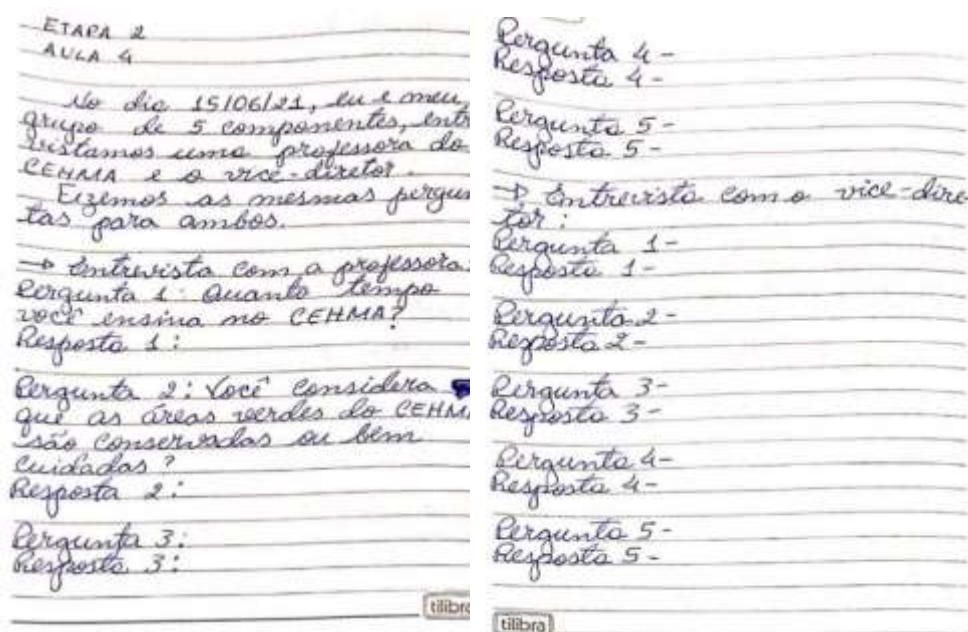 ETAPA 2
AULA 4
No dia 15/06/21, eu e meu
grupo de 5 componentes, entre
vistamos uma professora do
CEHMA e o vice-diretor.
Fizemos as mesmas pergun
tas para ambos.
→ Entrevista com a professora:
Pergunta 1: Quanto tempo
você ensina no CEHMA?
Resposta 1:
Pergunta 2: Você considera
que as áreas verdes do CEHMA
são conservadas ou bem
cuidadas?
Resposta 2:
Pergunta 3:
Resposta 3:
tilibra
Pergunta 4-
Resposta 4-
Pergunta 5-
Resposta 5-
→ Entrevista com o vice-dire-
tor:
Pergunta 1-
Resposta 1-
Pergunta 2-
Resposta 2-
Pergunta 3-
Resposta 3-
Pergunta 4-
Resposta 4-
Pergunta 5-
Resposta 5-
tilibra